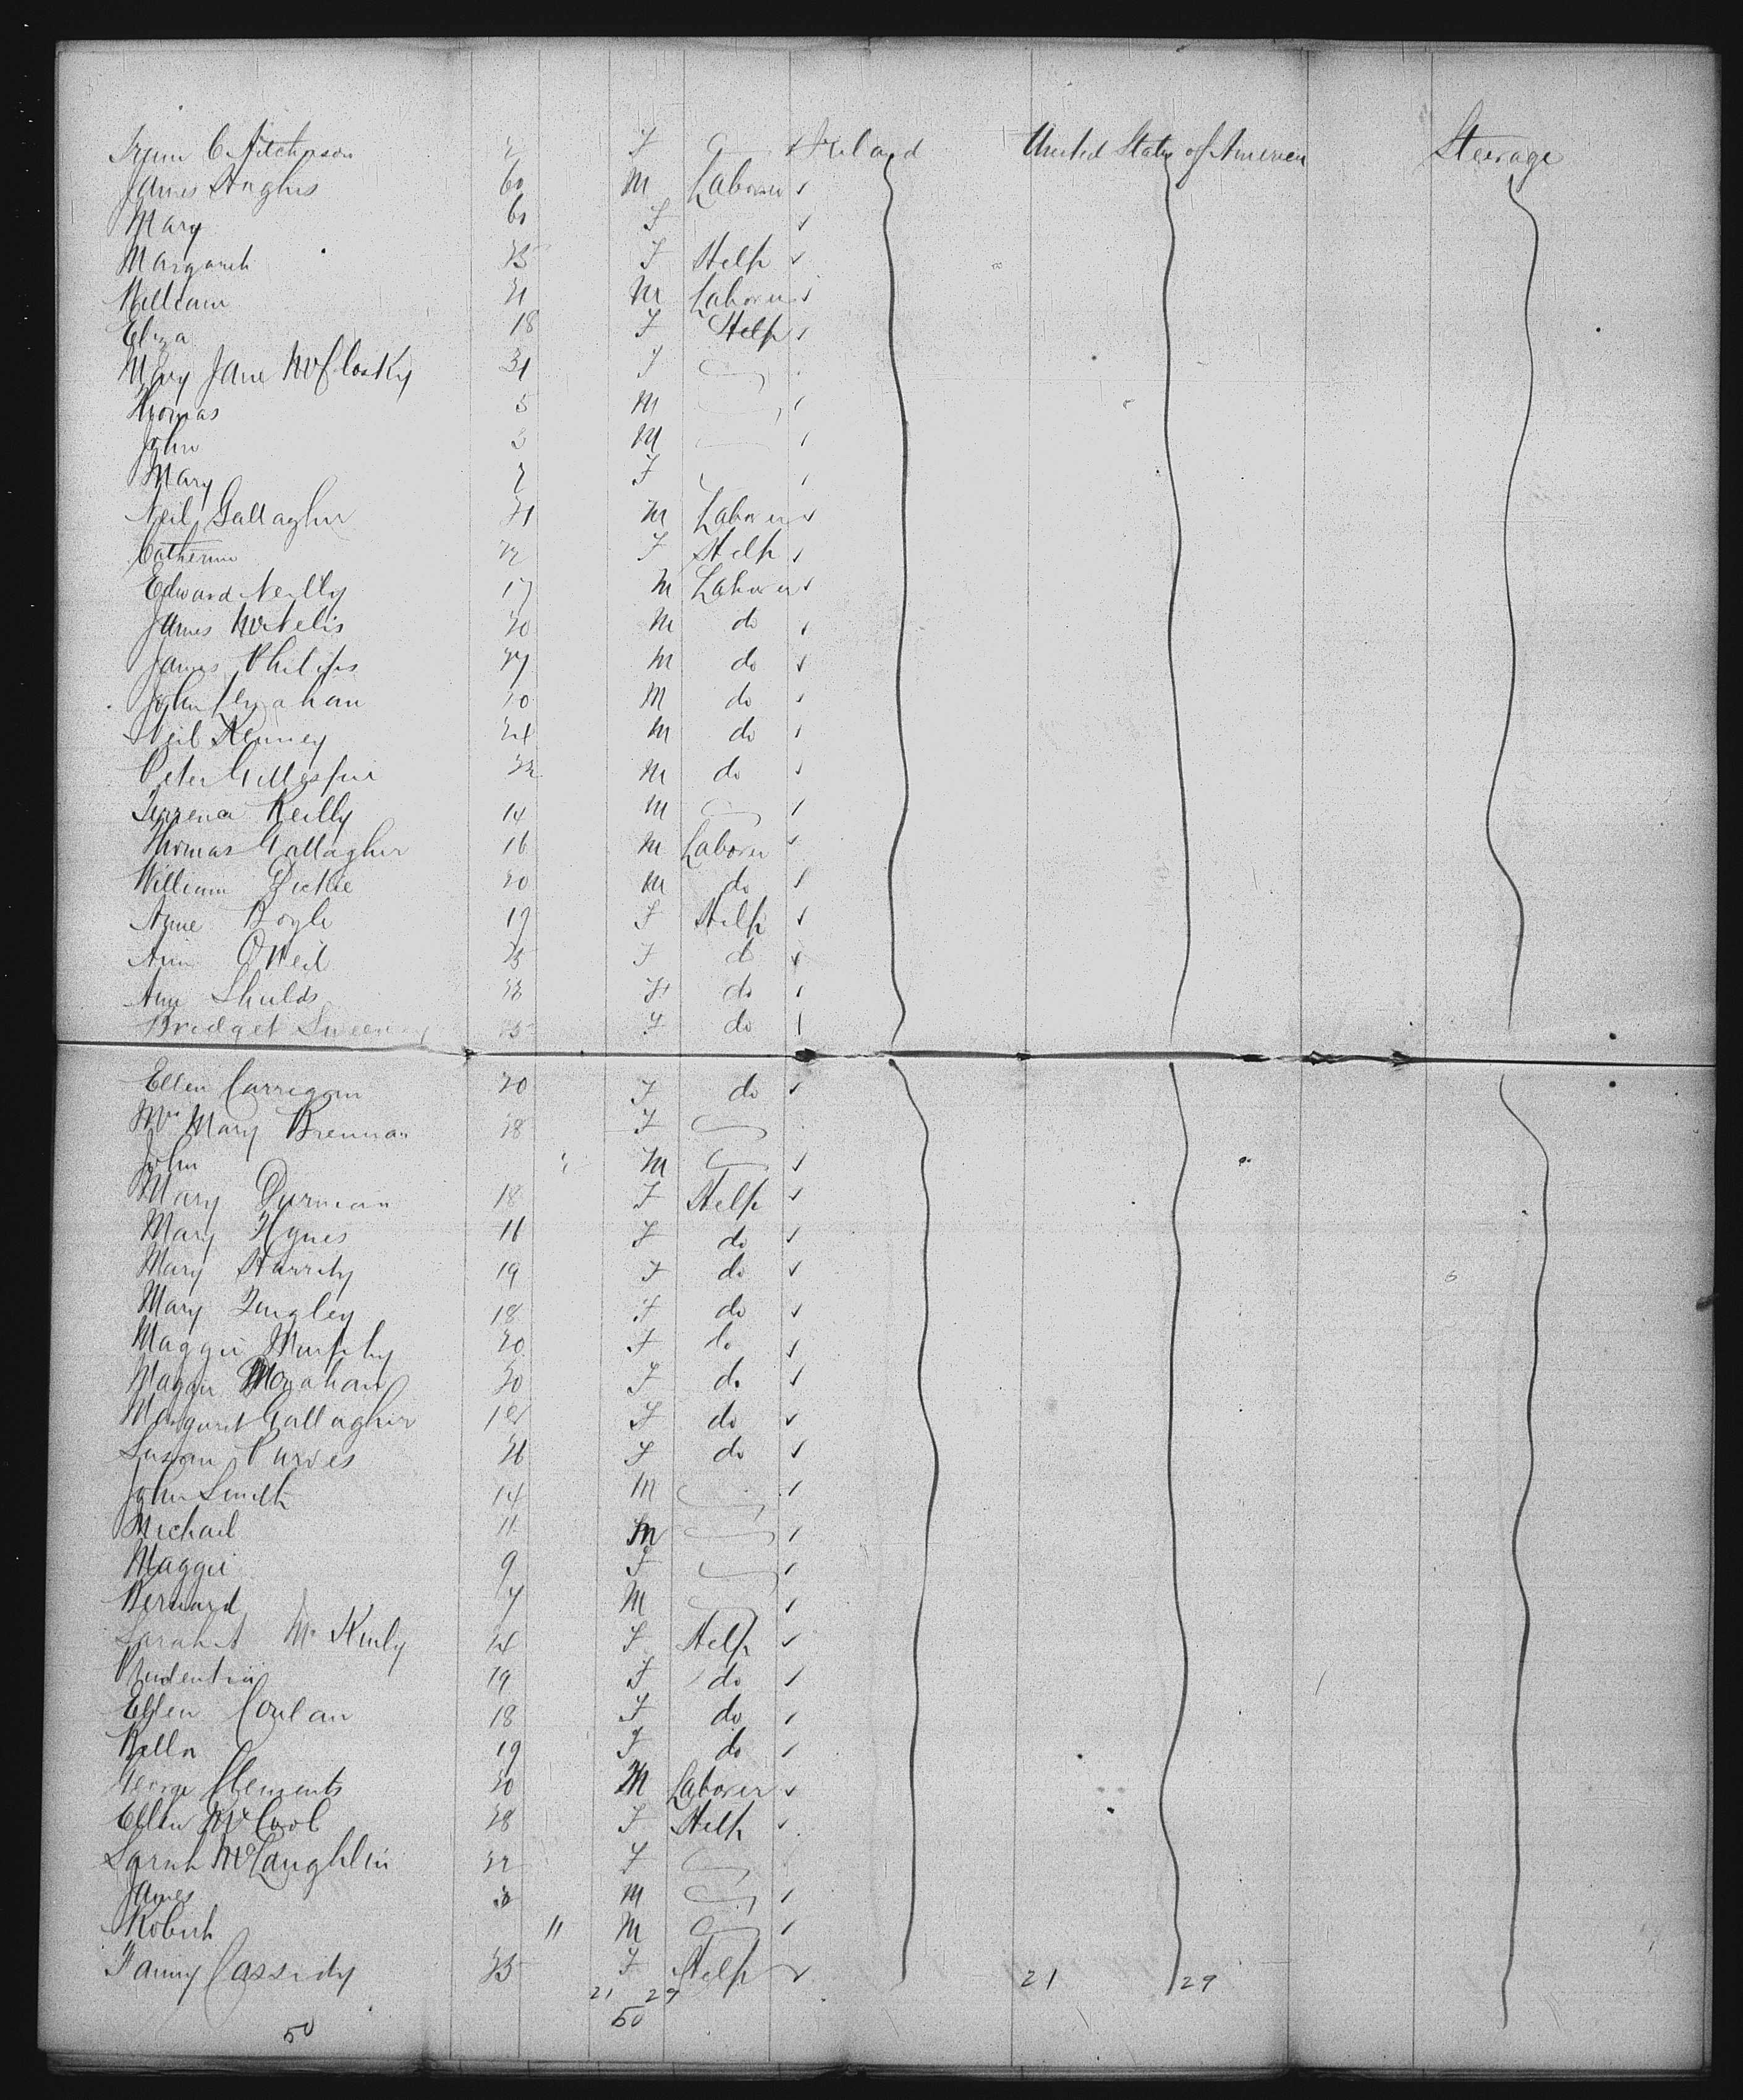 C Aitcheson 2 F Ireland United States of America Steerage
James Hughes 60 M Laborer
Mary 60 F
Margaret 25 F Help
William 21 M Laborer
Eliza 18 F Help
Mary Jane McClosky 31 F
Thomas 5 M
John 3 M
Mary 2 F
Neil Gallagher 21 M Laborer
Catherine 22 F Help
Edward Neilly 17 M Laborer
James McNelis 20 M do
James Philips 27 M do
John 20 M do
Neil Kenney 24 M do
Peter Gillespie 22 M do
Terrence Reilly 14 M
Thomas Gallagher 16 M Laborer
William Dickie 20 M do
Anne Boyle 19 F Help
Ann O'Neil 25 F do
Ann Shields F do
Bridget Sweeney 25 F do
Ellen Carrigan 20 F do
Mrs Mary Brennan 28 F
John M
Mary Durnian 18 F Help
Mary Hynes 16 F do
Mary Harrity 19 F do
Mary 18 F do
Maggie Murphy 20 F do
Maggie Monahan 20 F do
Margaret Gallagher F do
Susan Purves F do
John Smith 14 M
Michael 11 M
Maggie 9 F
Bernard 7 M
Sarah A Mc F Help
Prudentia 19 F do
Ellen Conlan 18 F do
Bella 19 F do
George Clements 20 M Laborer
Ellen McCool 28 F Help
Sarah McLaughlin 22 F
James M
Robert 11 M
Fanny Cassidy 25 F Help
21 29 21 29
50 50